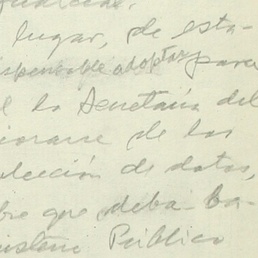 lugar, de esta-
ispensable adoptar para
la Secretaría del
iorarse de los
olección de datos,
bre que deba ba-
nisterio Público